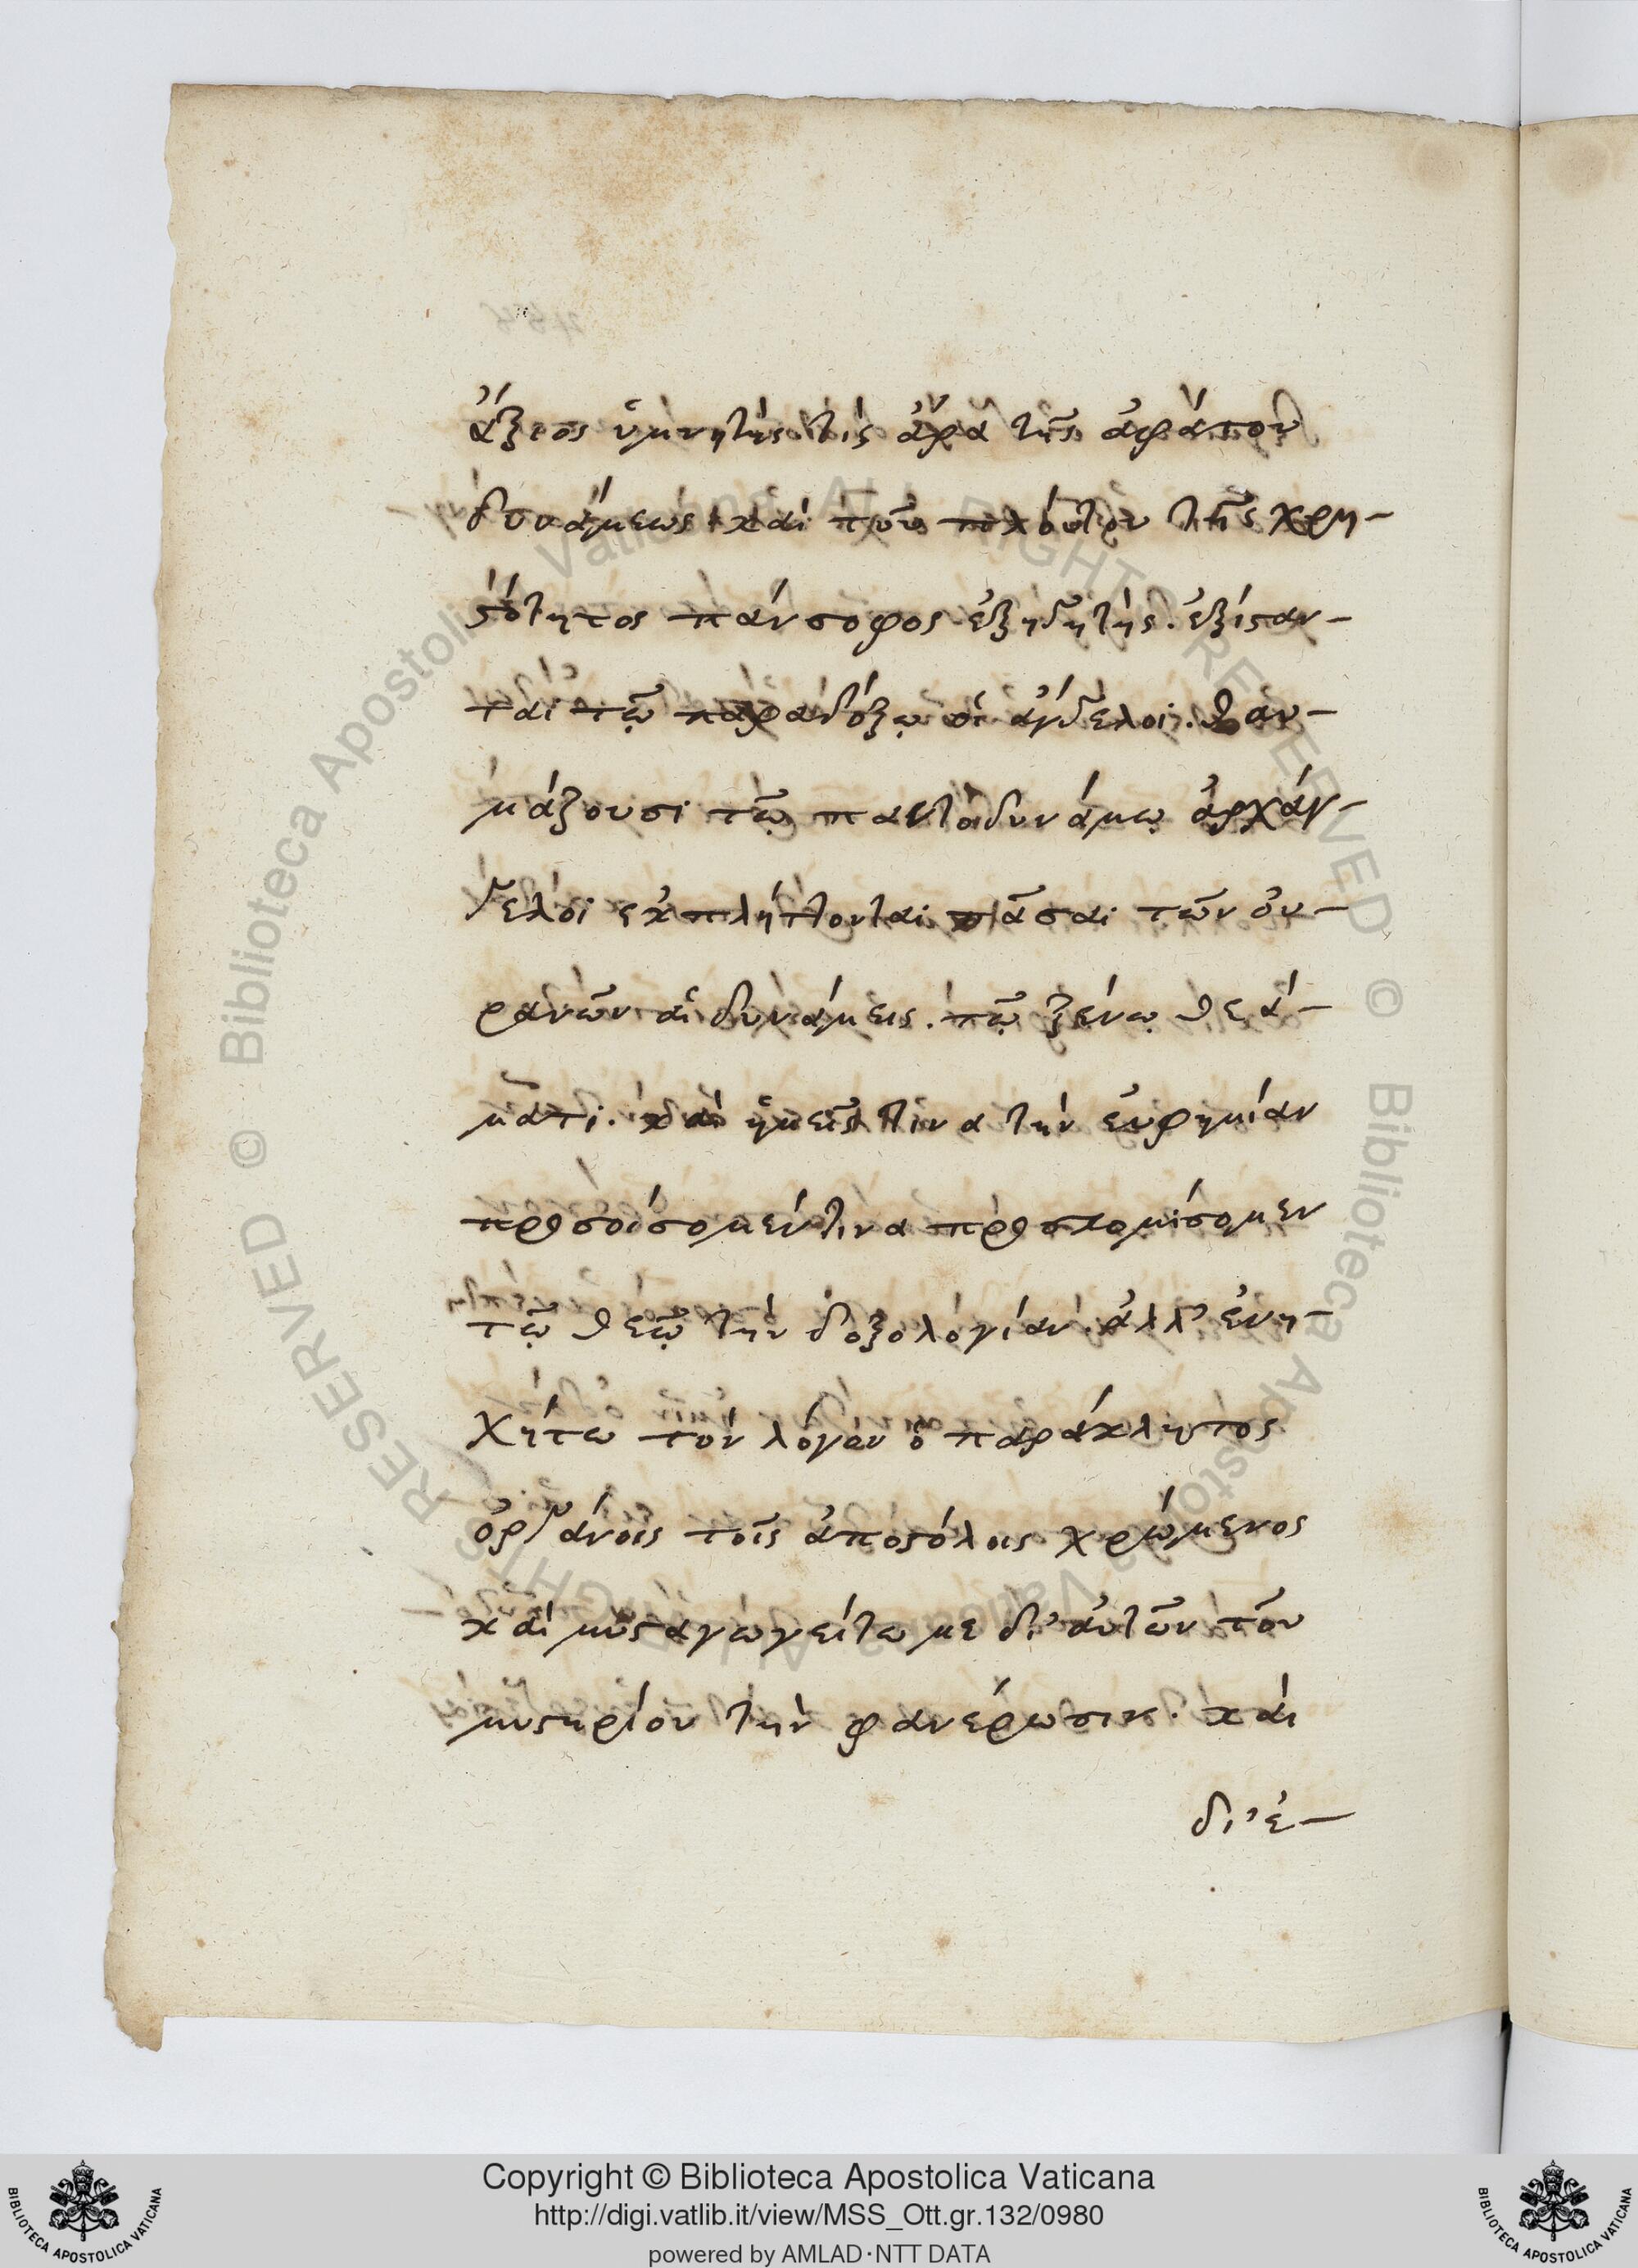 ἄξιος ὑμνητὴς τίς ἄρα τῆς ἀφάτου
δυνάμεως καὶ τοῦ πλούτου τῆς χρη-
στότητος πάνσοφος ἐξηγητής. ἐξίσταν-
ται τῷ παραδόξῳ οἱ ἄγγελοι. θαυ-
μάζουσι τῷ παντοδυνάμῳ ἀρχάγ-
γελοι ἐκπλήττονται πᾶσαι τῶν οὐ-
ρανῶν αἱ δυνάμεις. τῷ ξένῳ θεά-
ματι. καὶ ἡμεῖς τίνα τὴν εὐφημίαν
προσοίσομεν τίνα προσκομίσομεν
τῷ θεῷ τὴν δοξολογίαν. ἀλλ' ἐνη-
χήτω τὸν λόγον ὁ παράκλητος
ὀργάνοις τοῖς ἀποστόλοις χρώμενος
καὶ μυσταγωγείτω με δι' αὐτῶν τοῦ
μυστηρίου τὴν φανέρωσιν. καὶ
δι' ἐ-
Copyright © Biblioteca Apostolica Vaticana
http://digi.vatlib.it/view/MSS_Ott.gr.132/0980
powered by AMLAD·NTT DATA
BIBLIOTECA APOSTOLICA VATICANA
BIBLIOTECA APOSTOLICA VATICANA